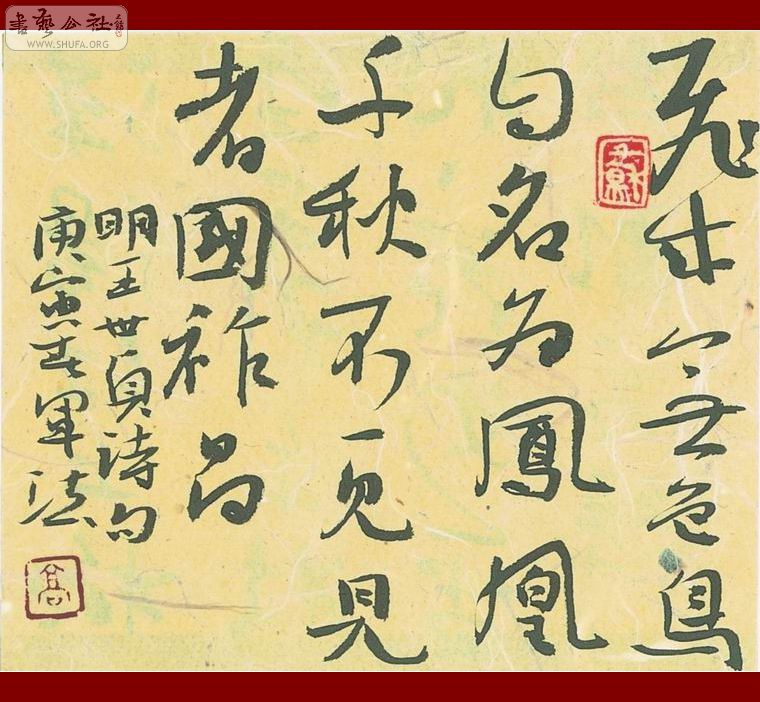 書藝公社
WWW.SHUFA.ORG
飛来五色鳥
自名为鳳凰
千秋不一见見
者國祚昌
明王世貞詩句
庚寅春軍法